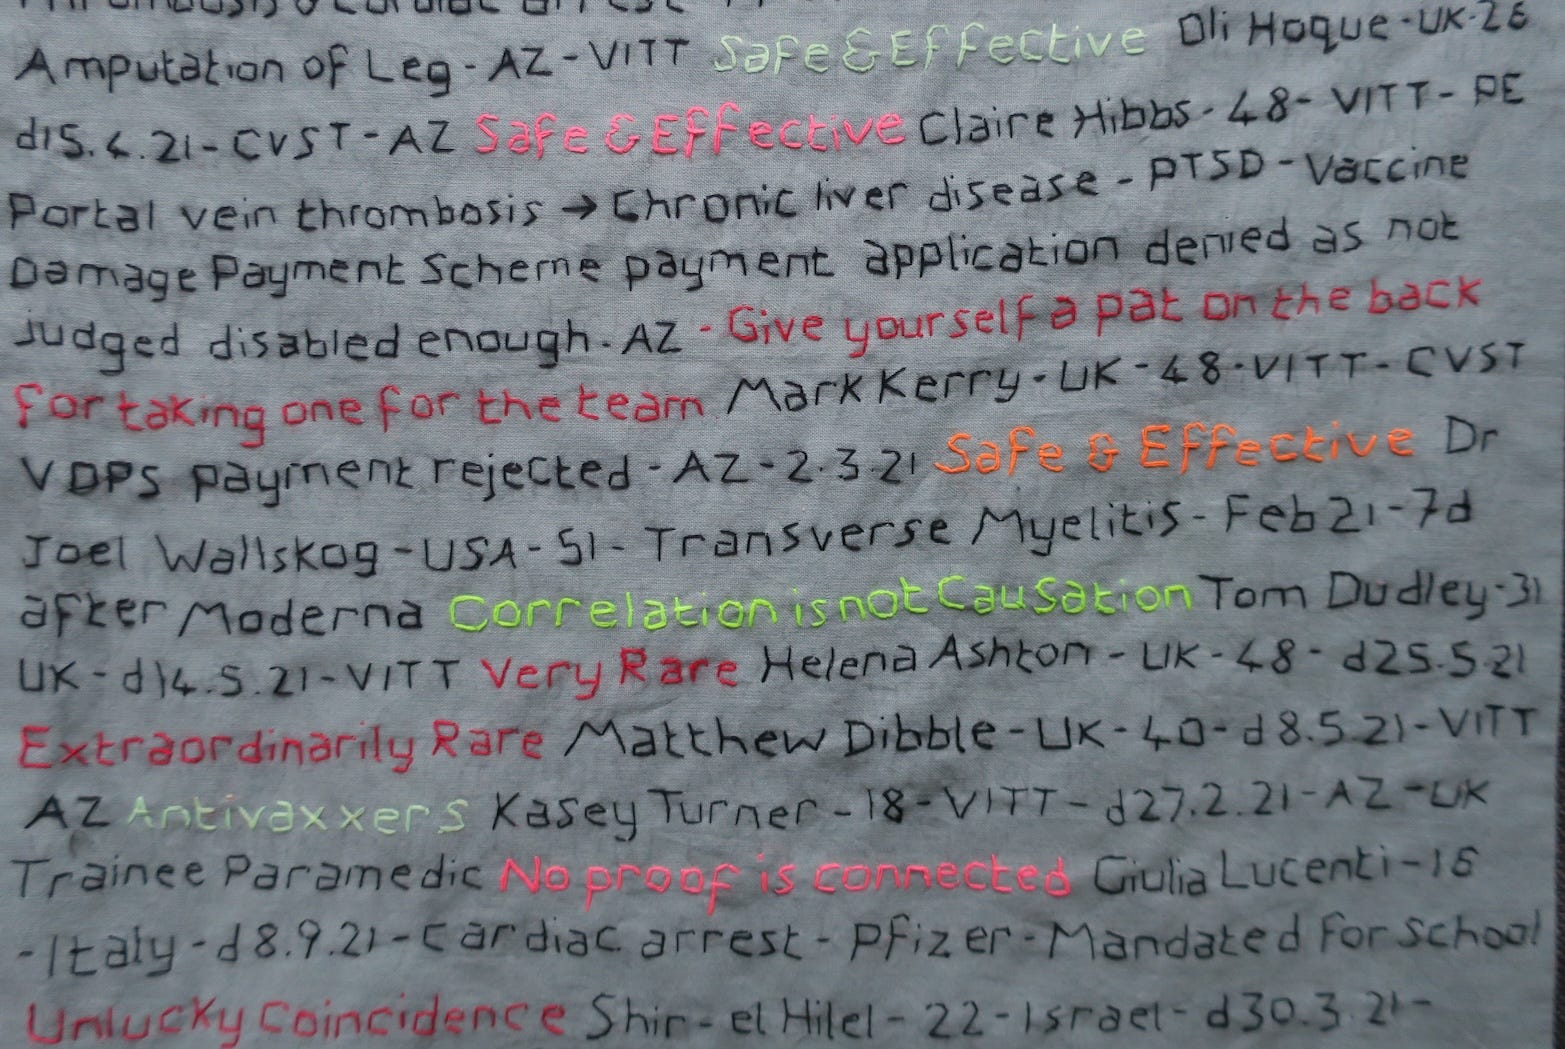 Thrombosis & cardiac arrest
Amputation of Leg - AZ - VITT Safe & Effective Oli Hoque - UK - 26
d15.4.21 - CVST - AZ Safe & Effective Claire Hibbs - 48 - VITT - PE
Portal vein thrombosis → Chronic liver disease - PTSD - Vaccine
Damage Payment Scheme payment application denied as not
judged disabled enough. AZ - Give yourself a pat on the back
for taking one for the team Mark Kerry - UK - 48 - VITT - CVST
VDPS payment rejected - AZ - 2.3.21 Safe & Effective Dr
Joel Wallskog - USA - 51 - Transverse Myelitis - Feb 21 - 7d
after Moderna Correlation is not Causation Tom Dudley - 31
UK - d14.5.21 - VITT Very Rare Helena Ashton - UK - 48 - d25.5.21
Extraordinarily Rare Matthew Dibble - UK - 40 - d8.5.21 - VITT
AZ Antivaxxers Kasey Turner - 18 - VITT - d27.2.21 - AZ - UK
Trainee Paramedic No proof is connected Giulia Lucenti - 16
- Italy - d8.9.21 - cardiac arrest - Pfizer - Mandated for school
Unlucky Coincidence Shir-el Hilel - 22 - Israel - d30.3.21 -